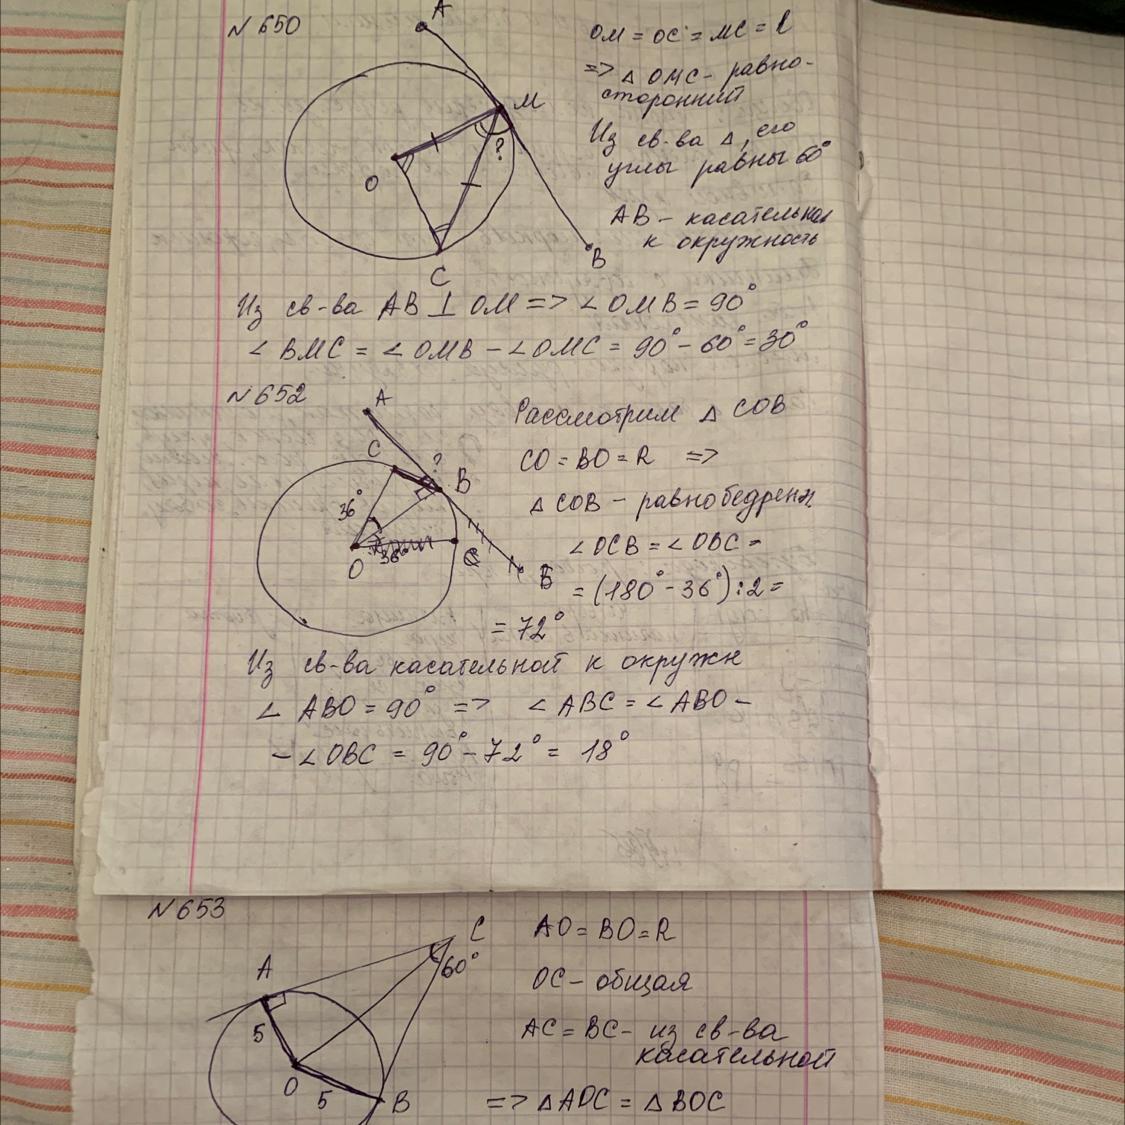 N 650
A
M
?
O
C
B
OM = OC = MC = R
=> △ OMC - равно-
сторонний
Из св-ва △, его
углы равны 60°
AB - касательная
к окружность
Из св-ва AB ⊥ OM => ∠ OMB = 90°
∠ BMC = ∠ OMB - ∠ OMC = 90° - 60° = 30°
N 652
A
C
?
B
36°
O
36°
Рассмотрим △ COB
CO = BO = R =>
△ COB - равнобедренн.
∠ OCB = ∠ OBC =
= (180° - 36°) : 2 =
= 72°
Из св-ва касательной к окружн
∠ ABO = 90° => ∠ ABC = ∠ ABO -
- ∠ OBC = 90° - 72° = 18°
N 653
C
60°
A
5
O
5
B
AO = BO = R
OC - общая
AC = BC - из св-ва
касательной
=> △ AOC = △ BOC